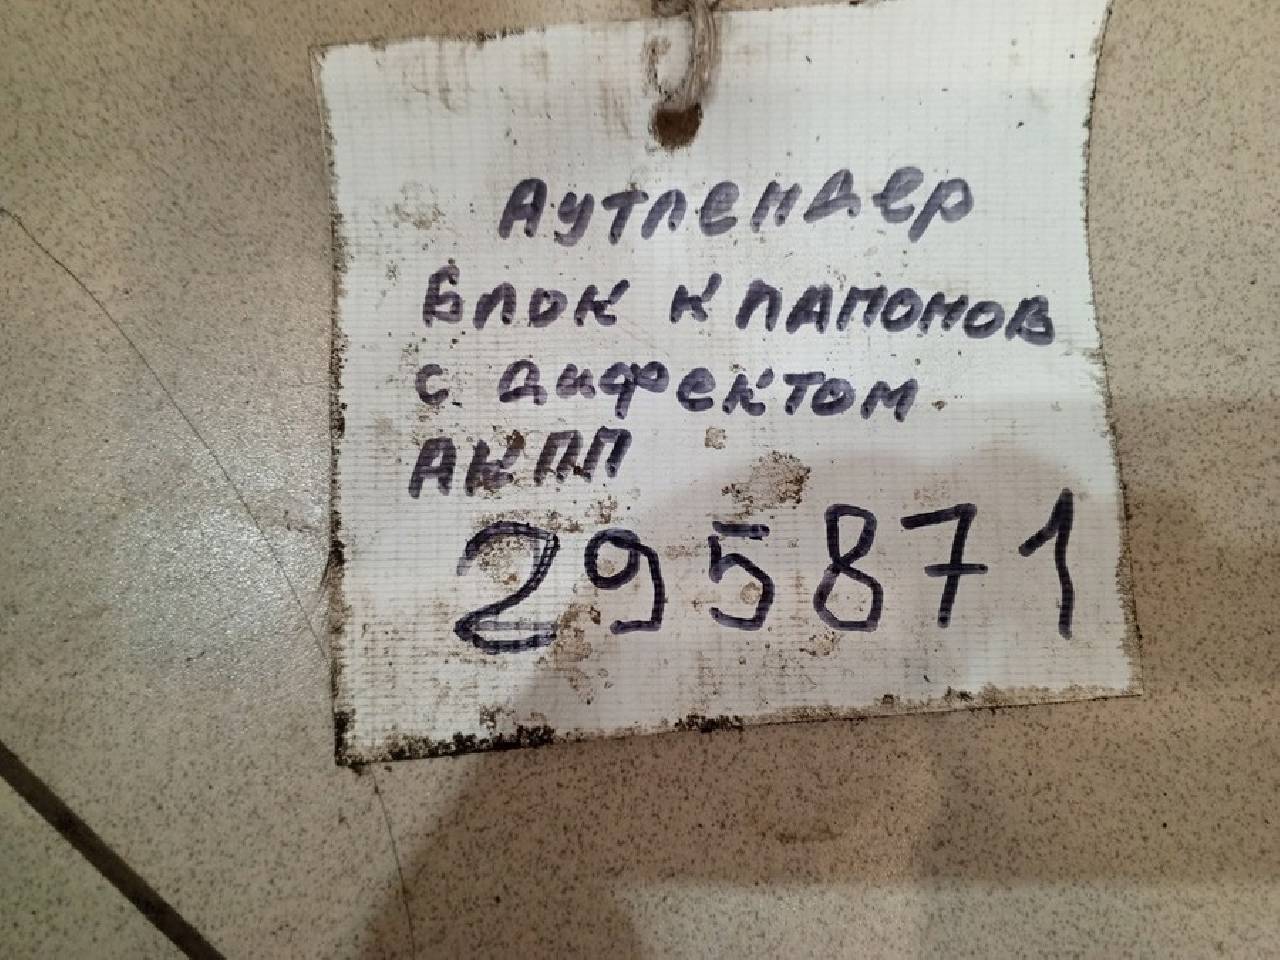 Аутлендер
Блок клапонов
с дифектом
АКПП
295871